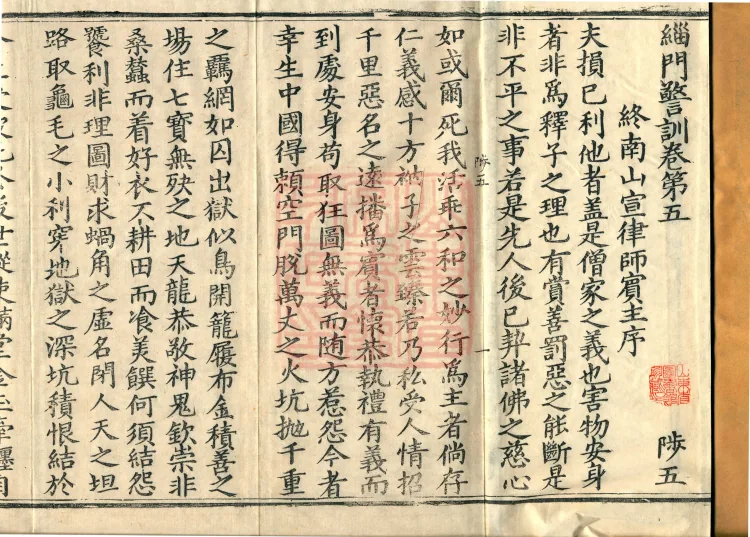 緇門警訓卷第五 陟五
終南山宣律師賓主序
夫損己利他者盖是僧家之義也害物安身
者非爲釋子之理也有賞善罰惡之能斷是
非不平之事若是先人後己契諸佛之慈心
陟五 一
如或爾死我活乖六和之妙行爲主者倘存
仁義感十方衲子之雲臻若乃私受人情招
千里惡名之遠播爲賓者懷恭執禮有義而
到處安身苟取狂圖無義而随方惹怨今者
幸生中國得頼空門脫萬丈之火坑抛千重
之羈網如囚出獄似鳥開籠履布金積善之
場住七寶無殃之地天龍恭敬神鬼欽崇非
桑蠶而着好衣不耕田而飡美饌何須結怨
饕利非理圖財求蝸角之虛名閉人天之坦
路取龜毛之小利穿地獄之深坑積恨結於